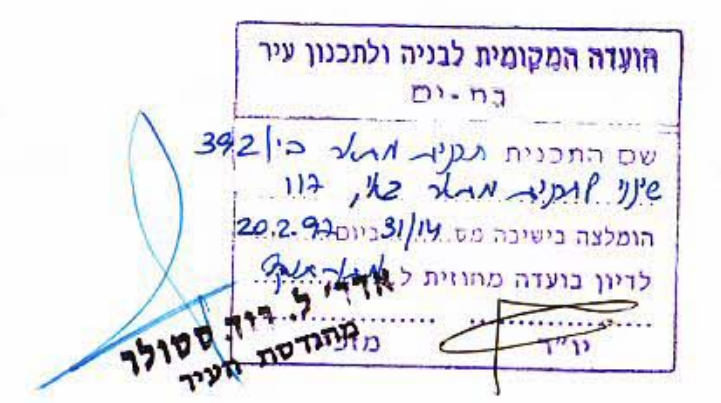 הועדה המקומית לבניה ולתכנון עיר
בת - ים
שם התכנית תכנית מתאר בי/392
שינוי לתכנית מתאר בי, 117
הומלצה בישיבה מס. 31/14 ביום 20.2.97
לדיון בועדה מחוזית ל
יו"ר
אדר' ל. דוד סטולר
מהנדסת העיר